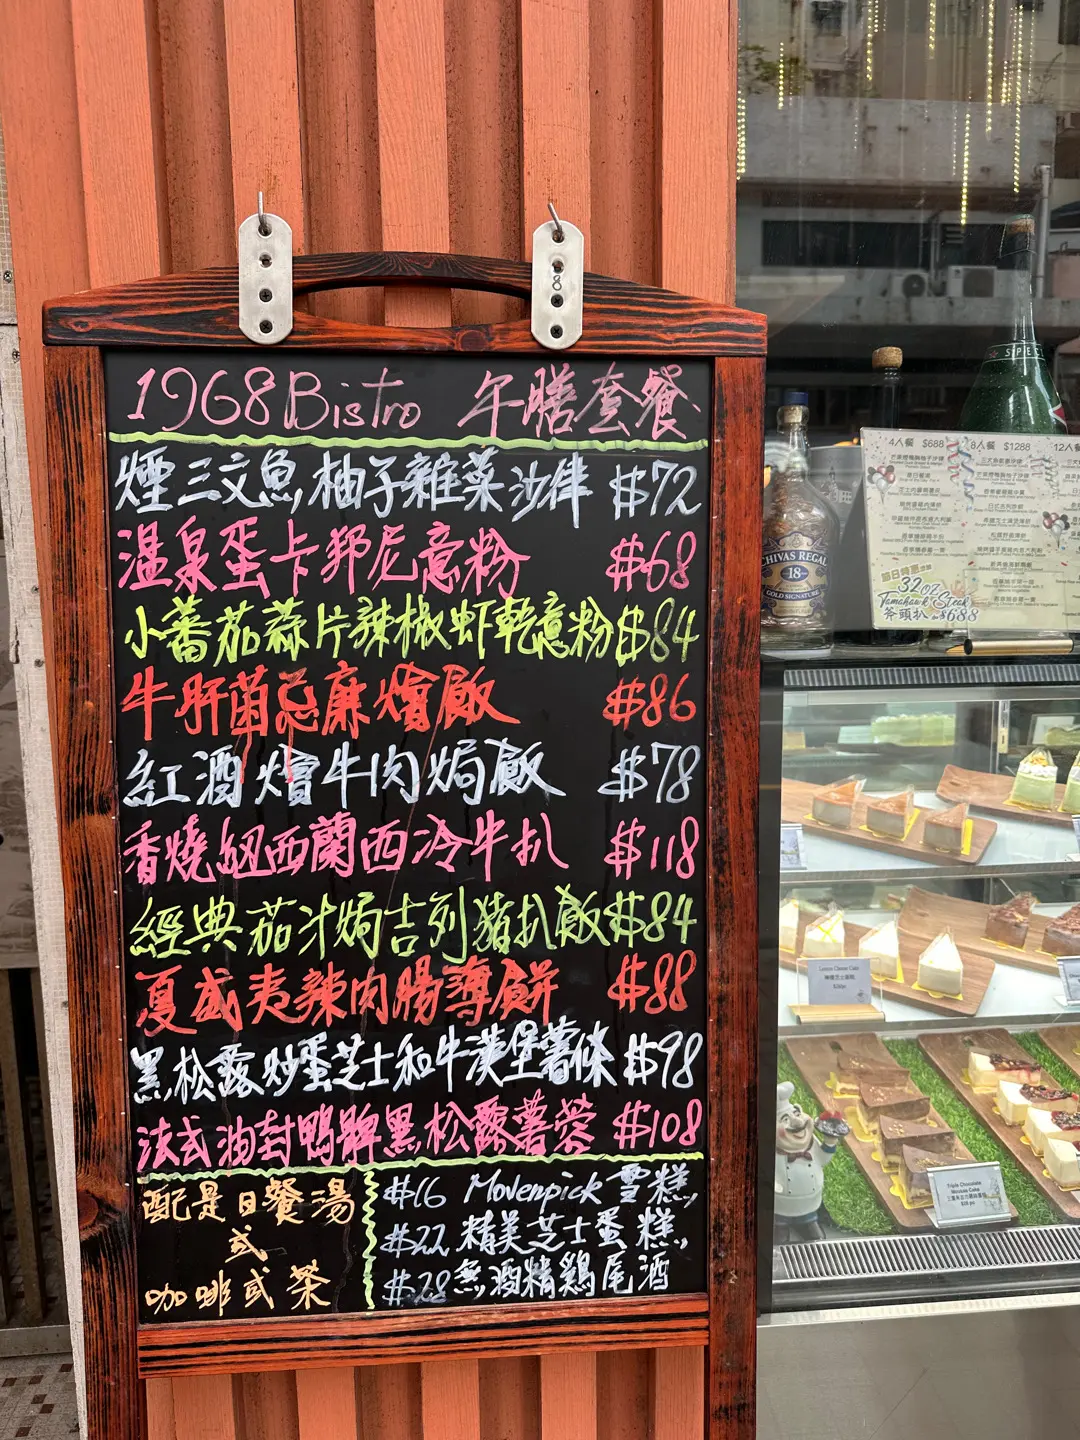 1968 Bistro 午膳套餐
煙三文魚柚子雜菜沙律 $72
溫泉蛋卡邦尼意粉 $68
小蕃茄蒜片辣椒蝦乾意粉 $84
牛肝菌忌廉燴飯 $86
紅酒燴牛肉焗飯 $78
香燒紐西蘭西冷牛扒 $118
經典茄汁焗吉列豬扒飯 $84
夏威夷辣肉腸薄餅 $88
黑松露炒蛋芝士和牛漢堡薯條 $98
法式油封鴨髀黑松露薯蓉 $108
配是日餐湯
或
咖啡或茶
$16 Movenpick 雪糕
$22 精美芝士蛋糕
$28 無酒精鷄尾酒
CHIVAS REGAL
18
GOLD SIGNATURE
SPEC
4人餐 $688
8人餐 $1288
12人餐
節日特惠
32oz
Tomahawk Steak
斧頭扒 $688
Lemon Cheese Cake
Triple Chocolate
Mousse Cake